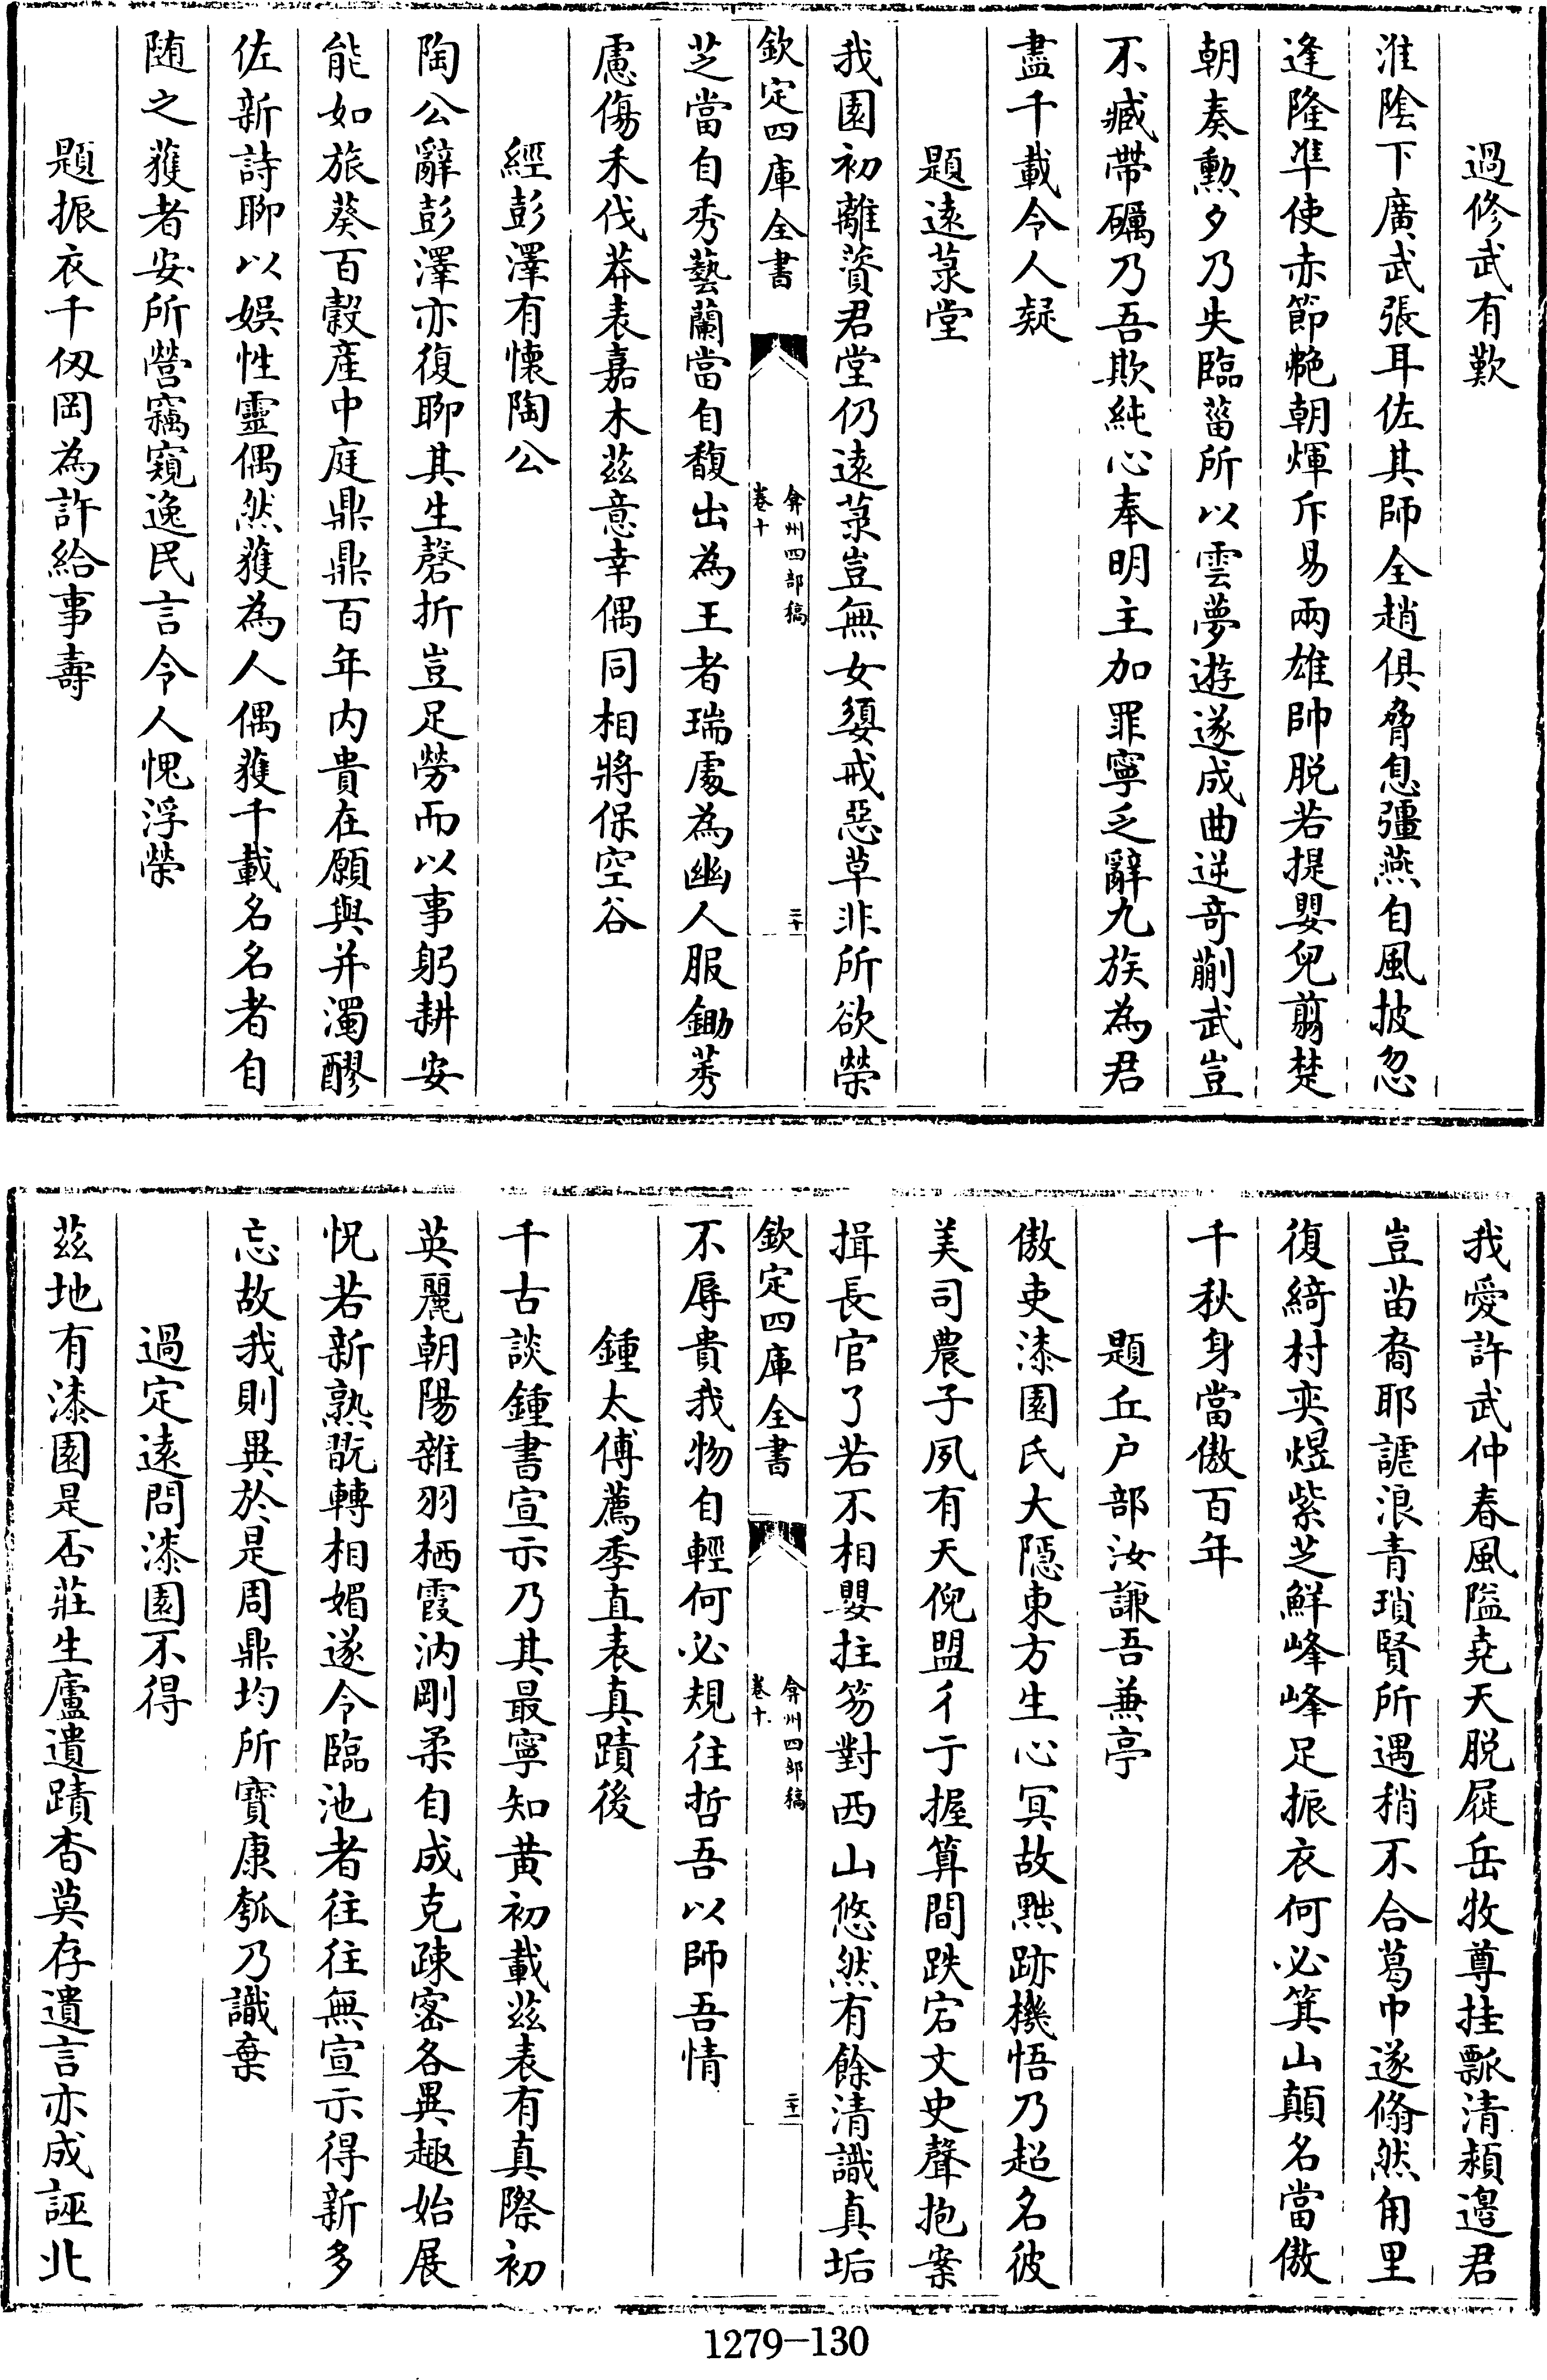 過修武有歎
淮陰下廣武張耳佐其師全趙俱脅息彊燕自風披忽
逢隆準使赤節艴朝煇斥易兩雄帥脱若提嬰兒翦楚
朝奏勲夕乃失臨菑所以雲夢遊遂成曲逆竒蒯武豈
不臧帶礪乃吾欺純心奉明主加罪寧乏辭九族為君
盡千載令人疑
題遠菉堂
我園初離薋君堂仍遠菉豈無女嬃戒惡草非所欲榮
欽定四庫全書
弇州四部稿
卷十
二十
芝當自秀藝蘭當自馥出為王者瑞處為幽人服鋤莠
慮傷禾伐莽表嘉木茲意幸偶同相將保空谷
經彭澤有懷陶公
陶公辭彭澤亦復聊其生磬折豈足勞而以事躬耕安
能如旅葵百穀產中庭鼎鼎百年内貴在願與并濁醪
佐新詩聊以娛性靈偶然獲為人偶獲千載名名者自
随之獲者安所營竊窺逸民言令人愧浮榮
題振衣千仭岡為許給事壽
我愛許武仲春風隘堯天脱屣岳牧尊挂瓢清潁邉君
豈苗裔耶謔浪青瑣賢所遇稍不合葛巾遂翛然甪里
復綺村奕煜紫芝鮮峰峰足振衣何必箕山顛名當傲
千秋身當傲百年
題丘户部汝謙吾兼亭
傲吏漆園氏大隠東方生心冥故㸃跡機悟乃超名彼
美司農子夙有天倪盟彳亍握算間跌宕文史聲抱案
揖長官了若不相嬰拄笏對西山悠然有餘清識真垢
欽定四庫全書
弇州四部稿
卷十
二十一
不辱貴我物自輕何必規往哲吾以師吾情
鍾太傅薦季直表真蹟後
千古談鍾書宣示乃其最寧知黄初載茲表有真際初
英麗朝陽雜羽栖霞汭剛柔自成克疎宻各異趣始展
怳若新熟翫轉相媚遂令臨池者往往無宣示得新多
忘故我則異於是周鼎均所寶康瓠乃識棄
過定遠問漆園不得
茲地有漆園是否莊生廬遺蹟杳莫存遺言亦成誣北
1279-130